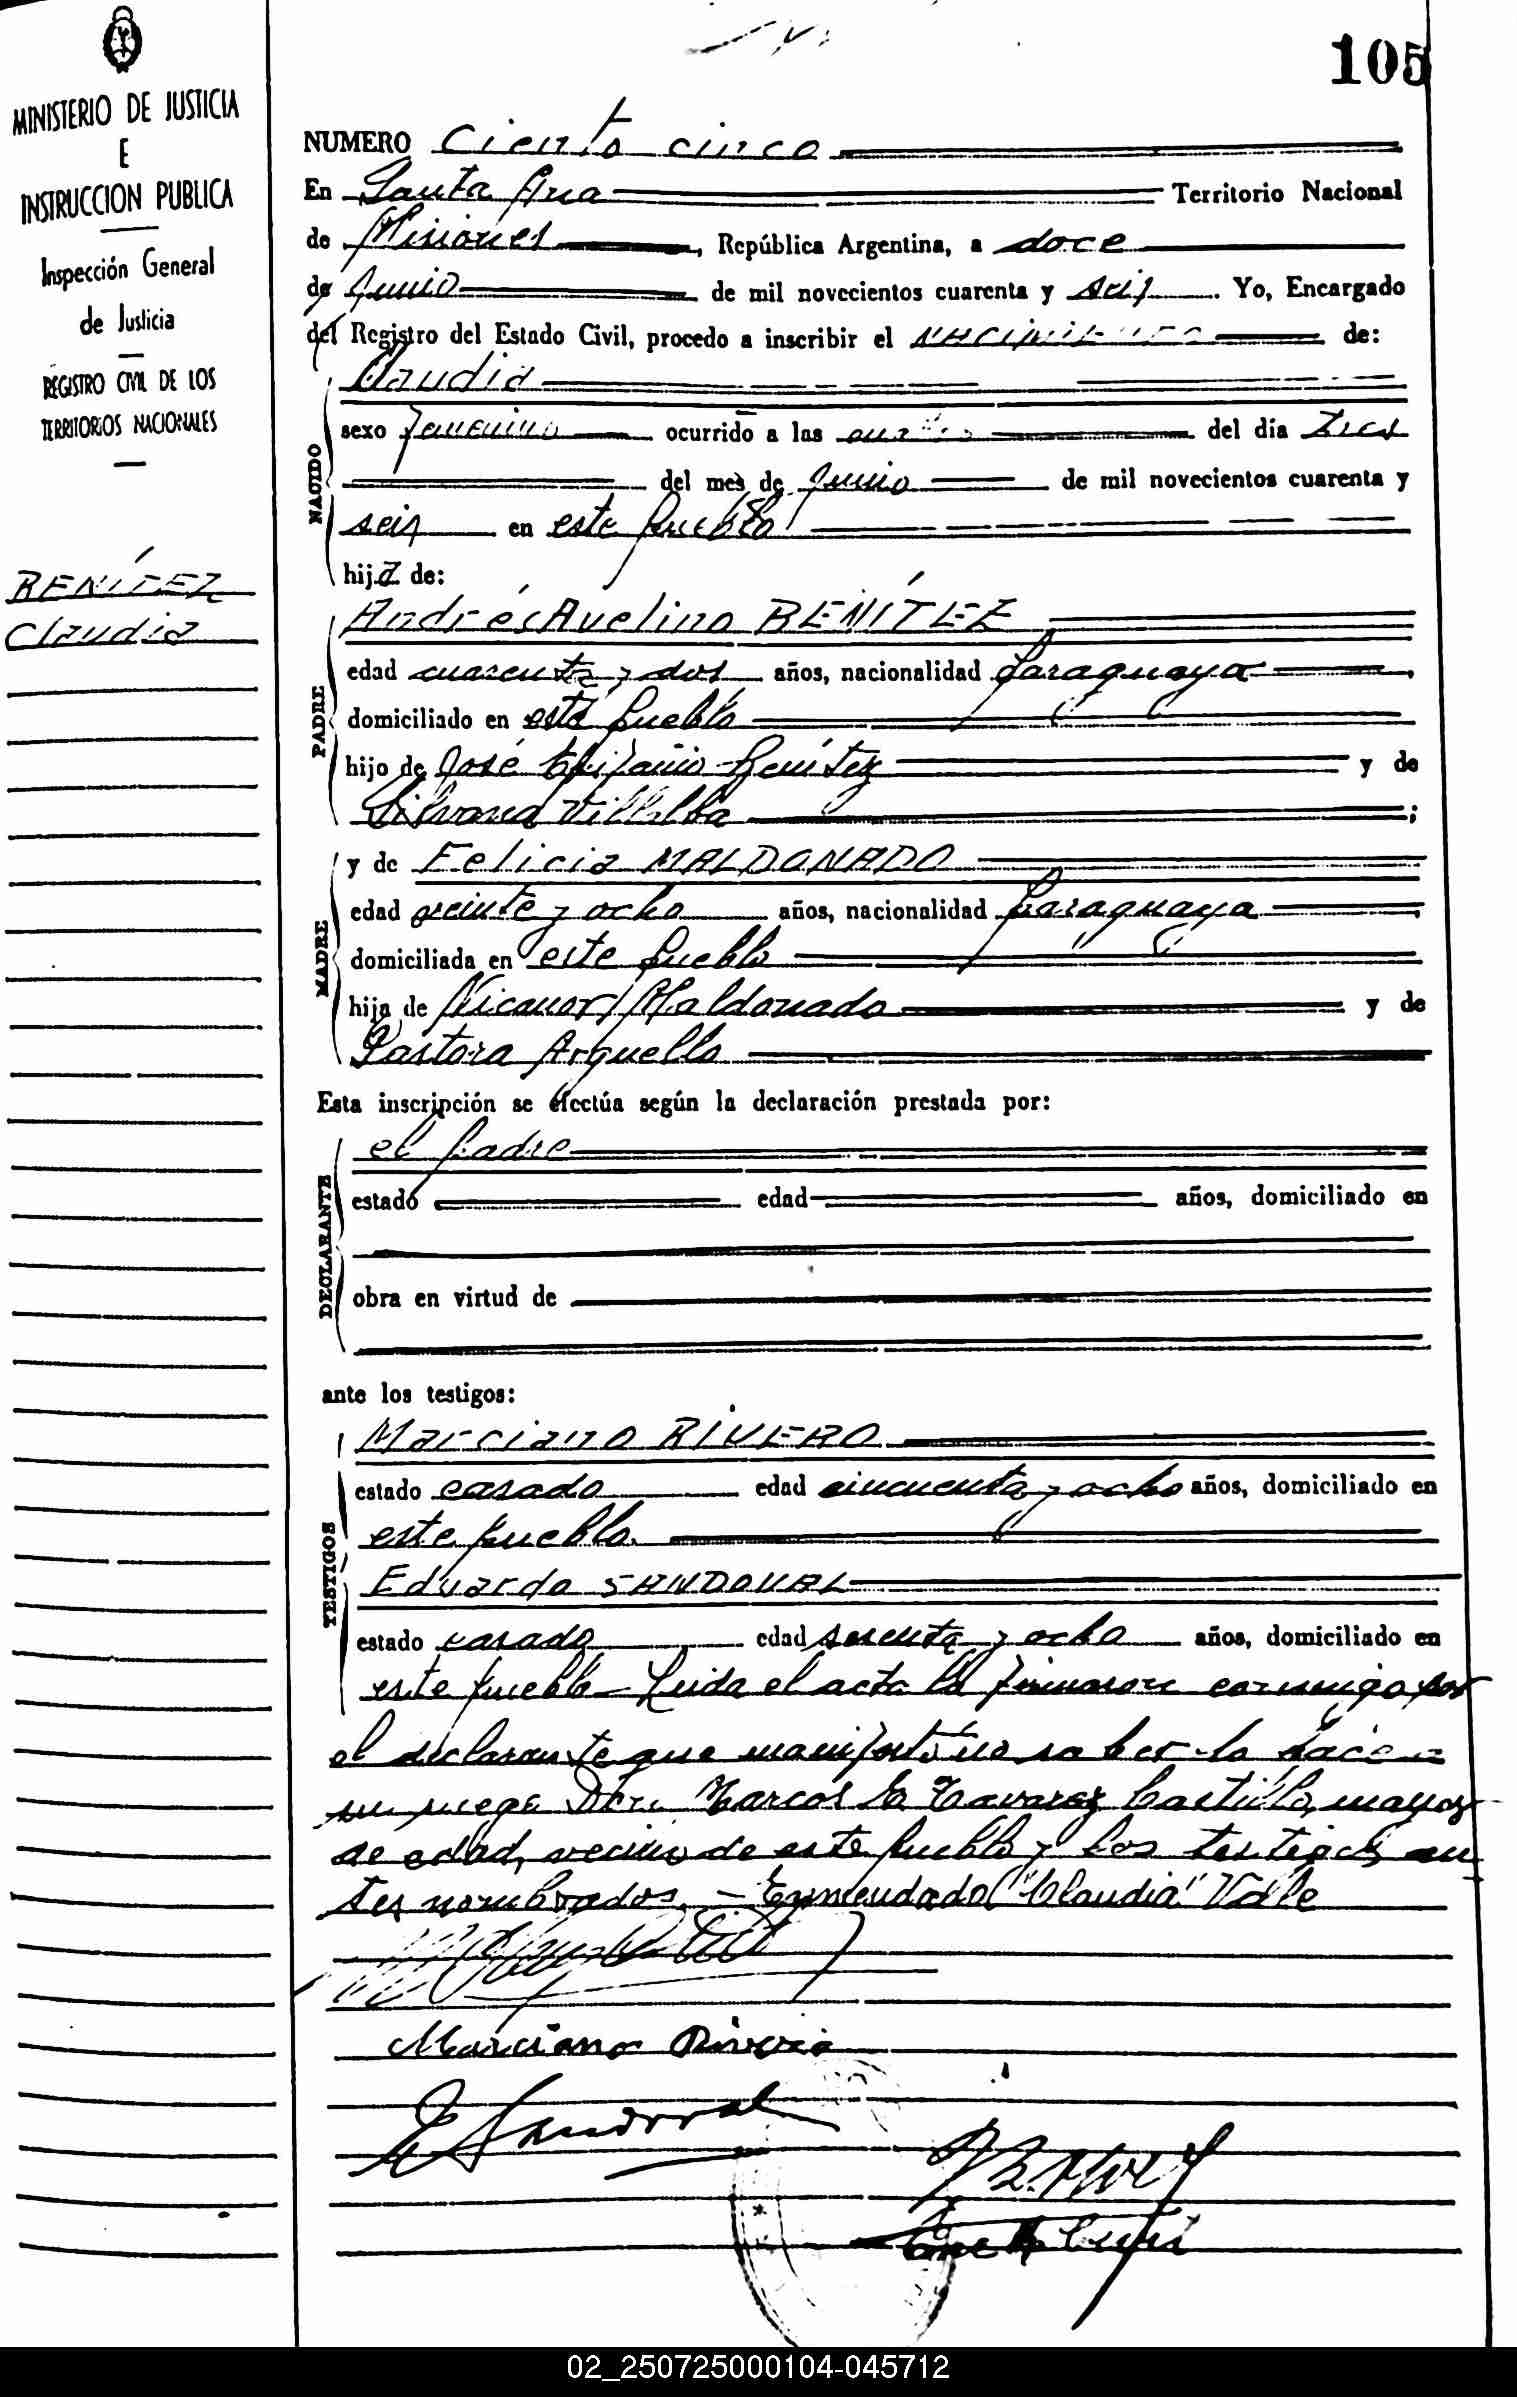 105
MINISTERIO DE JUSTICIA
E
INSTRUCCION PUBLICA
Inspección General
de Justicia
REGISTRO CIVIL DE LOS
TERRITORIOS NACIONALES
BENÍTEZ
Claudia
NUMERO Ciento cinco
En Santa Ana Territorio Nacional
de Misiones, República Argentina, a doce
de Junio de mil novecientos cuarenta y seis. Yo, Encargado
del Registro del Estado Civil, procedo a inscribir el NACIMIENTO de:
NACIDO
Claudia
sexo femenino ocurrido a las del día tres
del mes de Junio de mil novecientos cuarenta y
seis en este pueblo
hija de:
PADRE
Andrés Avelino BENÍTEZ
edad cuarenta y dos años, nacionalidad paraguaya
domiciliado en este pueblo
hijo de José Epifanio Benítez y de
Silvana Villalba;
MADRE
y de Felicia MALDONADO
edad veinte y ocho años, nacionalidad paraguaya
domiciliada en este pueblo
hija de Nicanor Maldonado y de
Pastora Arguello
Esta inscripción se efectúa según la declaración prestada por:
DECLARANTE
el padre
estado edad años, domiciliado en
obra en virtud de
ante los testigos:
TESTIGOS
Marciano RIVERO
estado casado edad cincuenta y ocho años, domiciliado en
este pueblo.
Eduardo SANDOVAL
estado casado edad sesenta y ocho años, domiciliado en
este pueblo - Leida el acta la firmaron conmigo por
el declarante que manifestó no saber lo hace a
su ruego Don Marcos Tavarez Castillo, mayor
de edad, vecino de este pueblo y los testigos an
tes nombrados. - Enmendado "Claudia" Vale
Marciano Rivero
E Sandoval
02_250725000104-045712